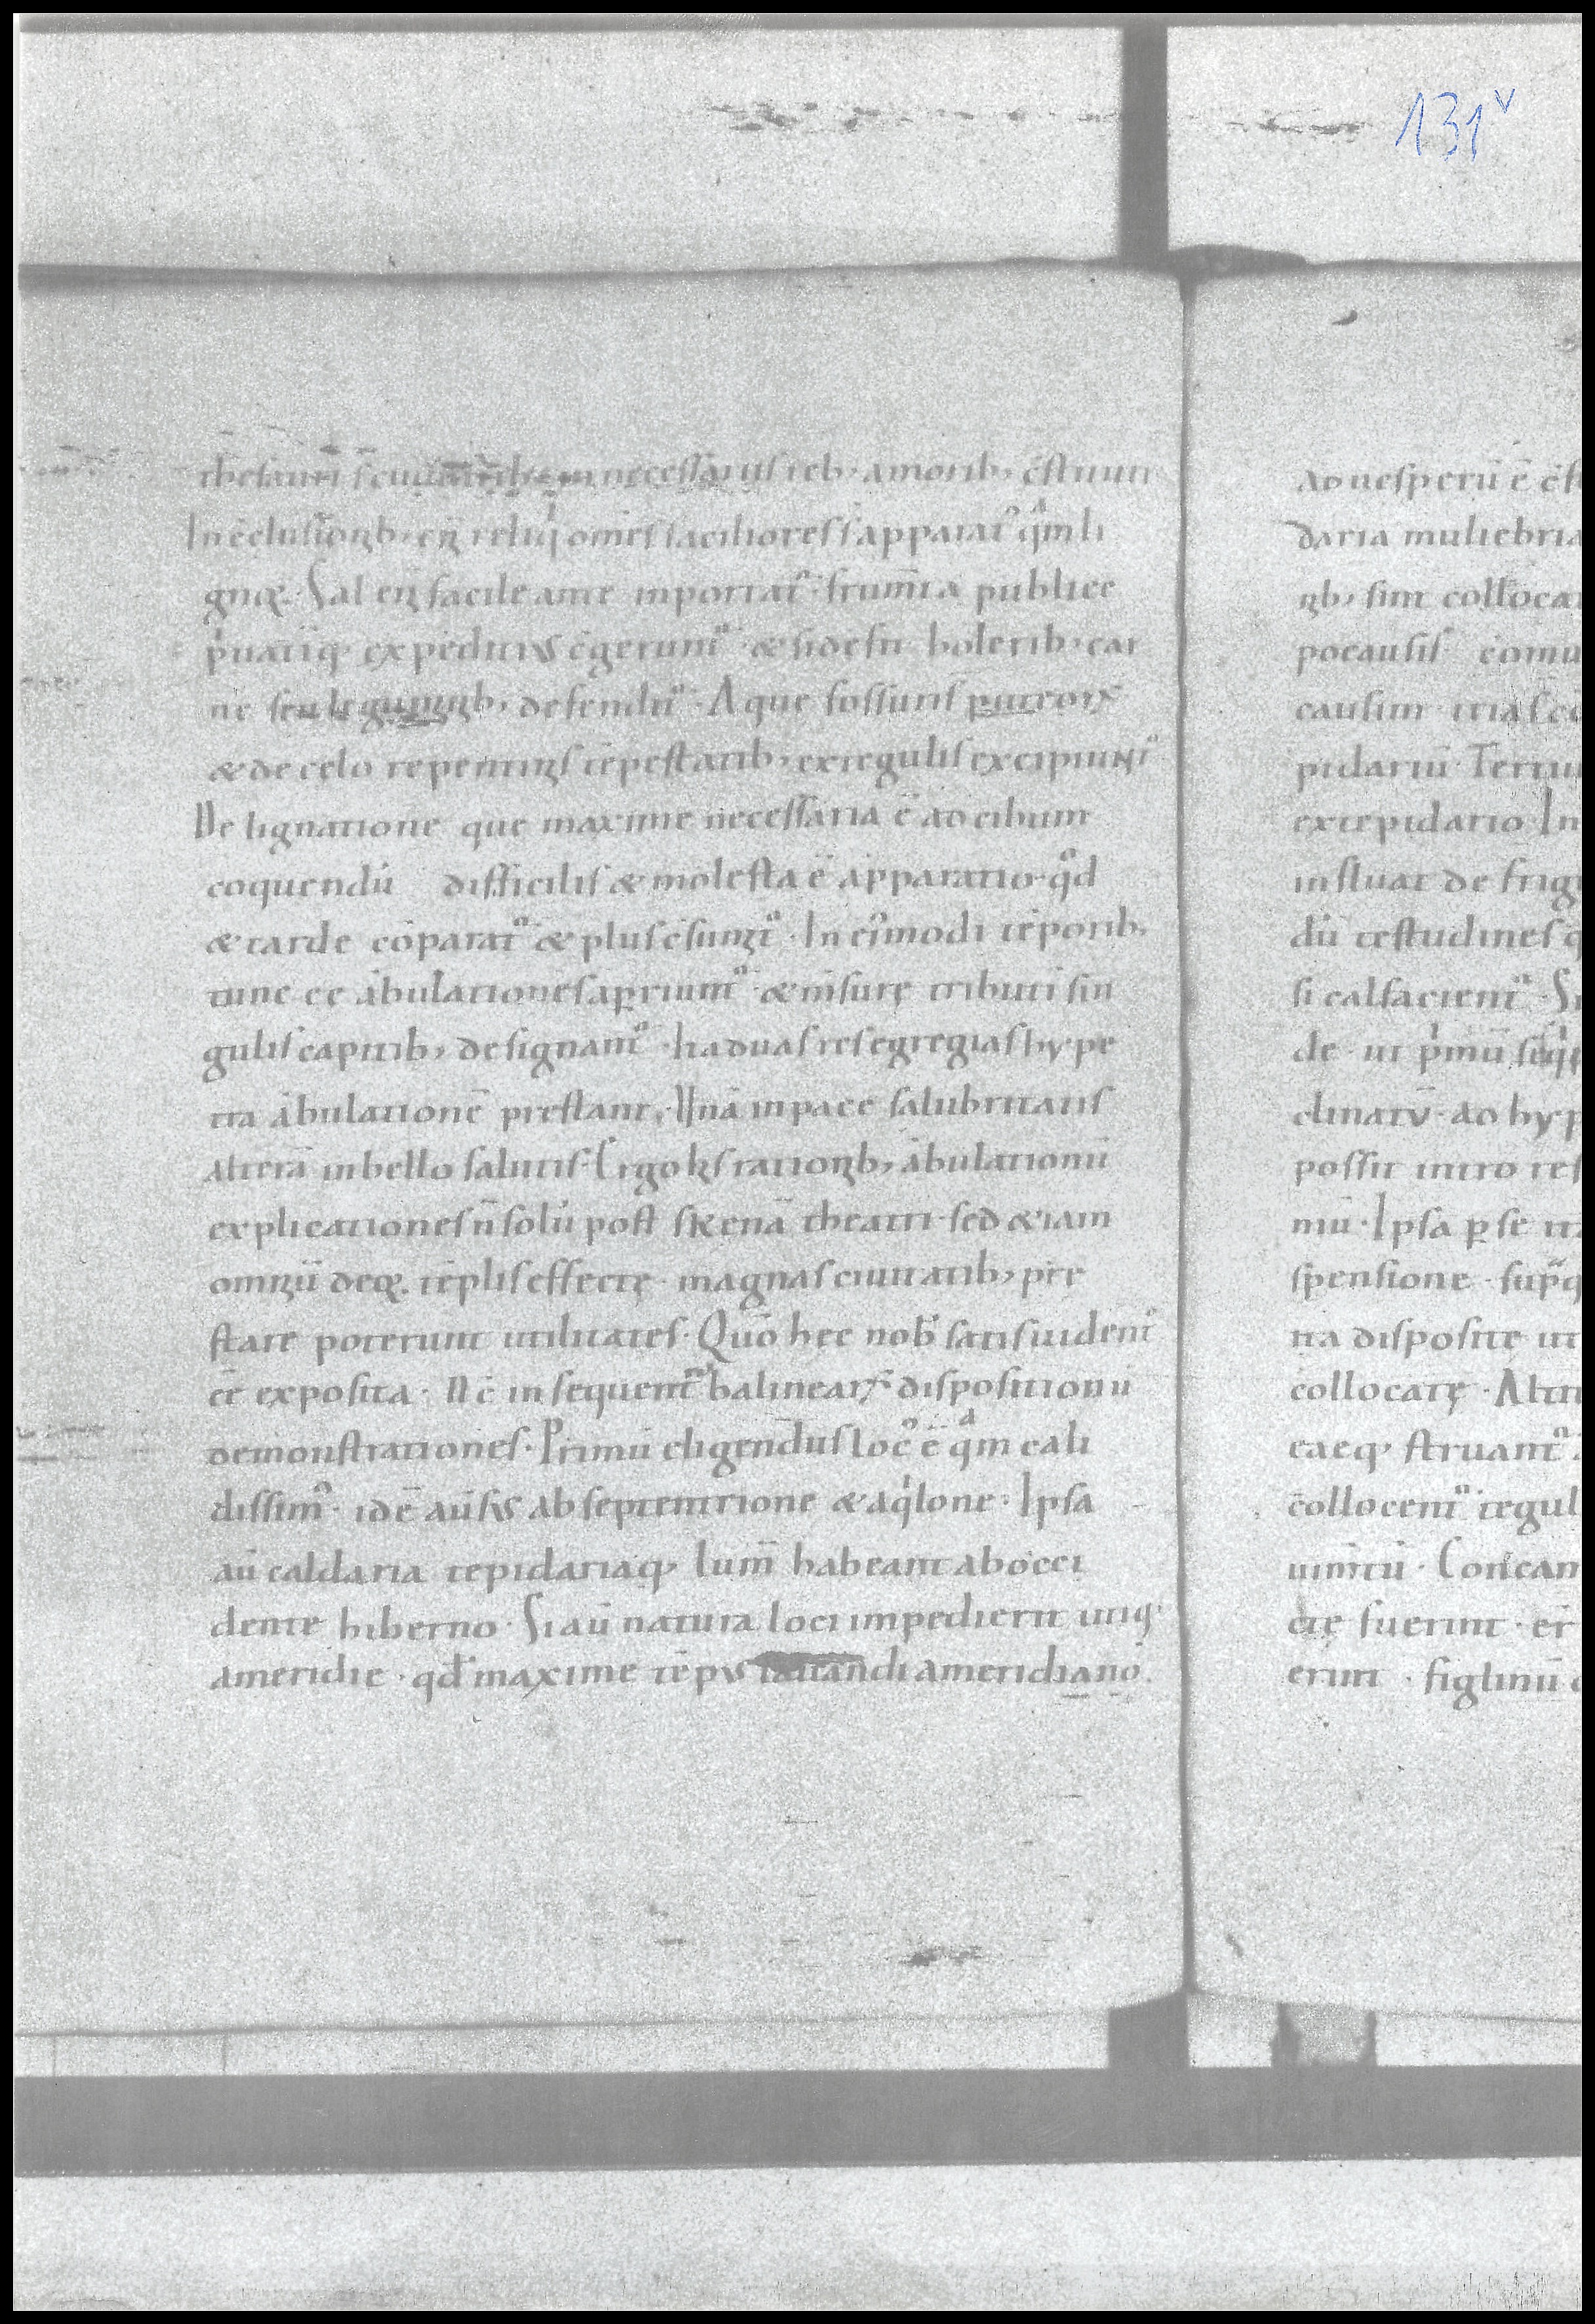 131v
thesauri sciuitatib; in necessariis reb; a maiorib; c̄stituti
In c̄clusionib; en̄ reliq omēs faciliores st̄ apparat᷒ q̄m li
gnoꝝ. Sal en̄ facile ante inportat᷒. frum̄ta publice
p̍uatiq; expeditius c̄gerunt᷒. & si desit holerib; car
ne seu leguminib; defendit᷒. Aque fossuris puteoꝝ
& de celo repentinis tēpestatib; ex tegulis excipiunt᷒
De lignatione que maxime necessaria ē ad cibum
coquendū difficilis & molesta ē apparatio. qd
& tarde cōparat᷒ & plus c̄sumit᷒. In ei᷒modi tēporib;
tunc ee ābulationes aꝑiunt᷒. & m̄surę tributi sin
gulis capitib; designant᷒. Ita duas res egregias hype
tra ābulationē prestant. Unā in pace salubritatis
alterā in bello salutis. Ergo his rationib; ābulationū
explicationes n̄ solū post skenā theatri. sed & iam
omniū deoꝝ. tēplis effectę. magnas ciuitatib; pre
stare poterunt utilitates. Quō hec nob̄ satis uident᷒
eē exposita. Nc̄ in sequent᷒ balinearꝝ dispositionū
demonstrationes. Primū eligendus loc᷒ ē q̄m cali
dissim᷒. idē auersus ab septentrione & aq̍lone. Ipsa
aū caldaria tepidariaq; lum̄ habeant ab occi
dente hiberno. Si aū natura loci impedierit utiq;
a meridie. qd̄ maxime tēpus lauandi a meridiano.
ad uesperū ē c̄st
daria muliebria
nib; sint colloca
pocausis comu
causim tria
pidariū. Tertiu
ex tepidario. In
influat de frig
dū testudines
si calfacient᷒. S
de. ut p̍mū
clinatū. ad hyp
possit intro res
mū. Ipsa ꝑ se
spensione. sup̄
ita disposite ut
collocatę. Altit
eaeq; struant᷒
collocent᷒ tegul
uim̄tū. Concam
ctę fuerint. er
erunt. figlinū